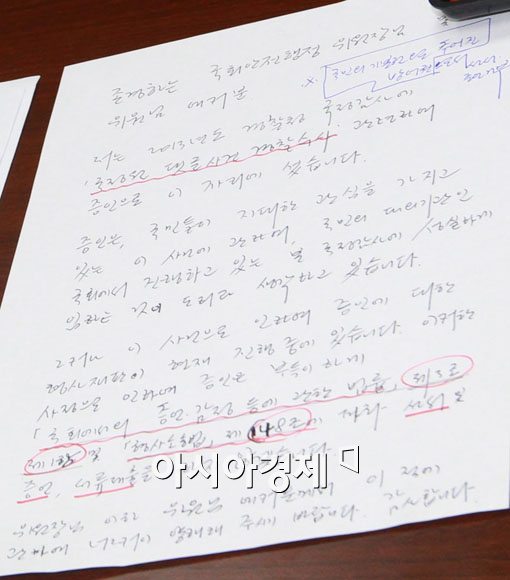 존경하는 국회안전행정 위원장님
위원님 여러분
※ 국민의 기본권으로 주어진
방어권
저는 2013년도 경찰청 국정감사에
「국정원 댓글사건 경찰수사」 관련하여
증인으로 이 자리에 섰습니다.
증인은, 국민들이 지대한 관심을 가지고
있는 이 사안에 관하여, 국민의 대의기관인
국회에서 진행하고 있는 본 국정감사에 성실하게
임하는 것이 도리라 생각하고 있습니다.
그러나 이 사안으로 인하여 증인에 대한
형사재판이 현재 진행 중에 있습니다. 이러한
사정으로 인하여 증인은 부득이 하게
「국회에서의 증언·감정 등에 관한 법률」 제3조
제1항 및 「형사소송법」 제148조에 따라 선서 및
증언, 서류제출을
아시아경제
위원장님 이하 위원님 여러분께서 이 점에
관하여 너그러이 양해해 주시기 바랍니다. 감사합니다.